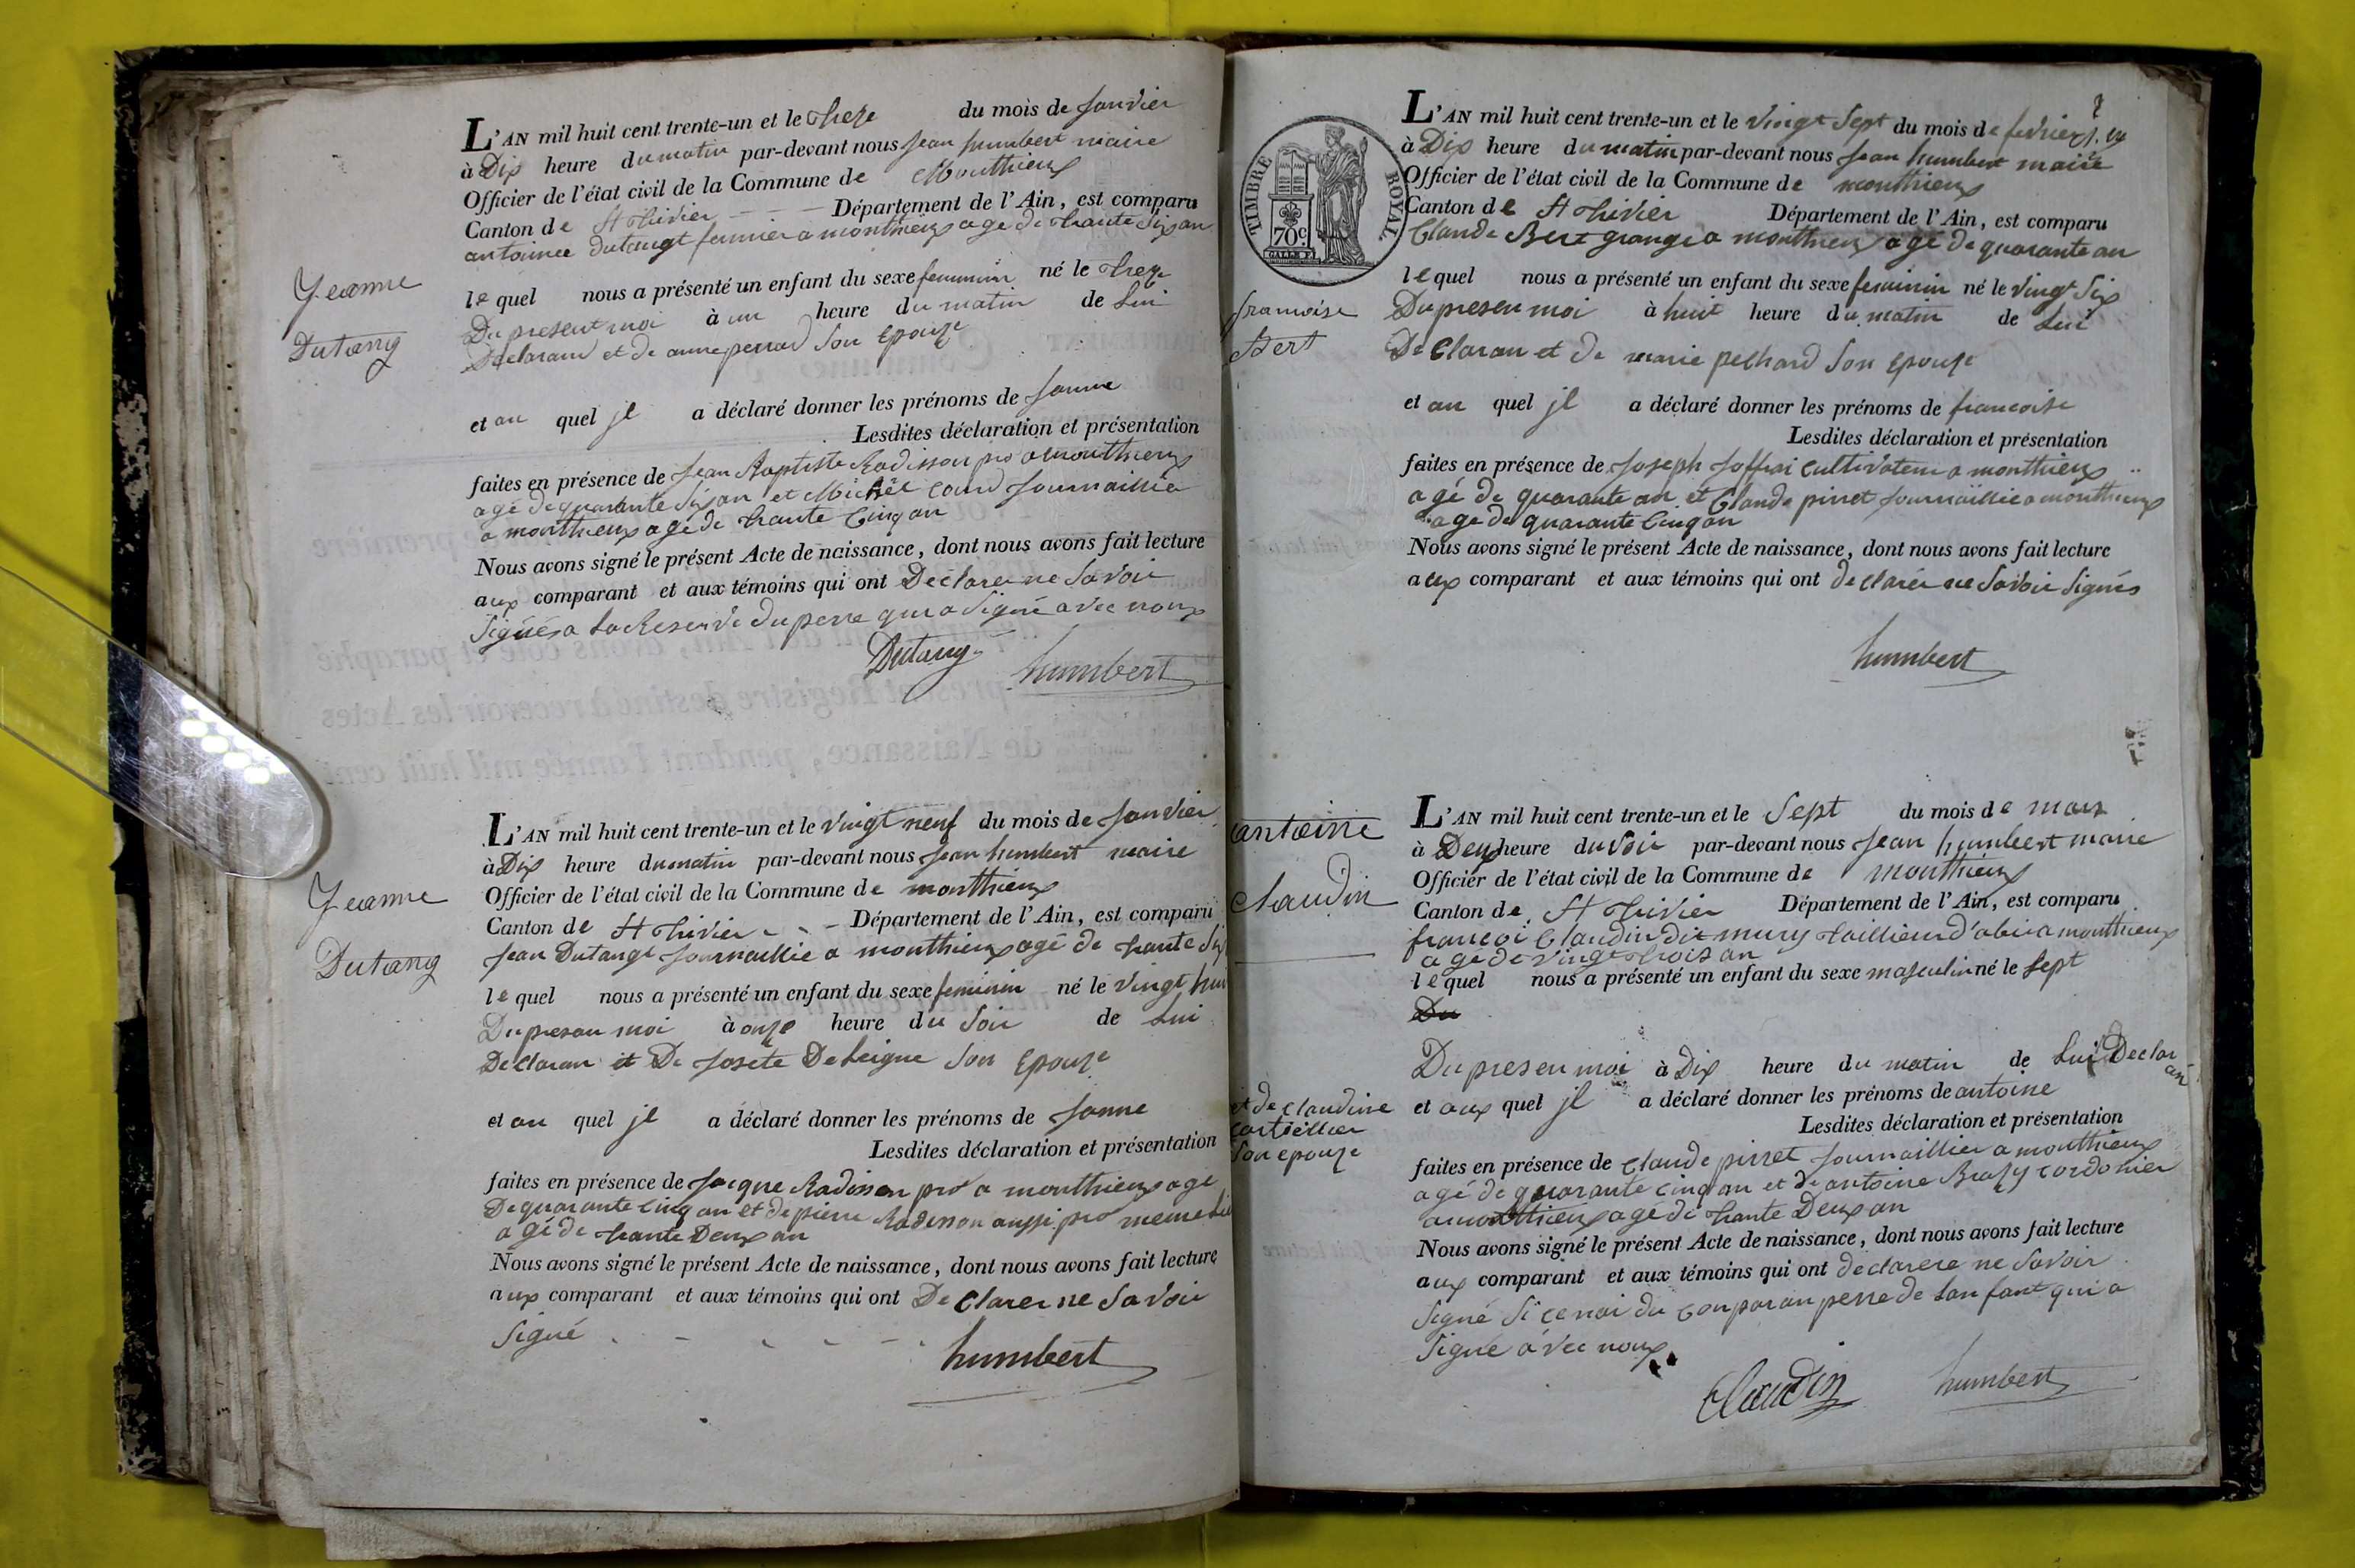 L'AN mil huit cent trente-un et le Treze du mois de Janvier
à Dix heure du matin par-devant nous Jean humbert maire
Officier de l'état civil de la Commune de Monthieux
Canton de St Trivier Département de l'Ain, est comparu
antoinee Dutangt fermier a monthieux age de trante Six an
le quel nous a présenté un enfant du sexe feminin né le Treze
Du present moi à un heure du matin de Lui
Declarand et de anne perrad Son Epouze
et au quel jl a déclaré donner les prénoms de Janne
Lesdites déclaration et présentation
faites en présence de Jean Baptiste Radisson pro a monthieux
agé de quarante Six an et Michel cand Journaillié
a monthieux agé de trante Cinq an
Nous avons signé le présent Acte de naissance, dont nous avons fait lecture
aux comparant et aux témoins qui ont Déclarer ne Savoir
Signés a La Reserve du perre qui a Signé avec nous
Dutang humbert
Jeanne
Dutang
L'AN mil huit cent trente-un et le vingt neuf du mois de Janvier
à Dix heure du matin par-devant nous Jean humbert maire
Officier de l'état civil de la Commune de monthieux
Canton de St Trivier Département de l'Ain, est comparu
Jean Dutangt Journaillié a monthieux agé de trante Six
le quel nous a présenté un enfant du sexe feminin né le vingt hui
Du presan moi à onze heure du Soir de Lui
Declaran et De Josete Deleigne Son Epouze
et au quel jl a déclaré donner les prénoms de Janne
Lesdites déclaration et présentation
faites en présence de Jacque Radisson pro a monthieux agé
De quarante Cinq an et de pierre Radisson aussi pro meme
agé de trante Deux an
Nous avons signé le présent Acte de naissance, dont nous avons fait lecture
aux comparant et aux témoins qui ont Declarer ne Savoir
Signé
humbert
Jeanne
Dutang
TIMBRE ROYAL
70c
L'AN mil huit cent trente-un et le vingt Sept du mois de fevrier
à Dix heure du matin par-devant nous Jean humbert maire
Officier de l'état civil de la Commune de monthieux
Canton de St Trivier Département de l'Ain, est comparu
Claude Bert grangé a monthieux agé de quarante an
le quel nous a présenté un enfant du sexe feminin né le vingt Six
Du presen moi à huit heure du matin de Lui
De Claran et de marie pechard Son Epouze
et au quel jl a déclaré donner les prénoms de francoise
Lesdites déclaration et présentation
faites en présence de Joseph Joffrai Cultivateur a monthieux
agé de quarante an et Claude pirret Journaillié a monthieux
age de quarante Cinq an
Nous avons signé le présent Acte de naissance, dont nous avons fait lecture
aux comparant et aux témoins qui ont declarér ne Savoir Signés
humbert
francoise
Bert
L'AN mil huit cent trente-un et le Sept du mois de mars
à Deux heure du Soir par-devant nous Jean humbert maire
Officier de l'état civil de la Commune de monthieux
Canton de St Trivier Département de l'Ain, est comparu
francoi Claudin dit mury taillieur d'abi a monthieux
agé de vingt trois an
le quel nous a présenté un enfant du sexe masculin né le Sept
Du
Du presen moi à Dix heure du matin de Lui Declaran
et aux quel jl a déclaré donner les prénoms de antoine
Lesdites déclaration et présentation
faites en présence de Claude pirret Journaillier a monthieux
agé de quarante cinq an et de antoine Brazy cordonier
a monthieux agé de trante Deux an
Nous avons signé le présent Acte de naissance, dont nous avons fait lecture
aux comparant et aux témoins qui ont declarere ne Savoir
Signé Si ce noi du comparan perre de Lanfant qui a
Signé avec nous
Claudin humbert
antoine
claudin
et de claudine
cartellier
Son epouze